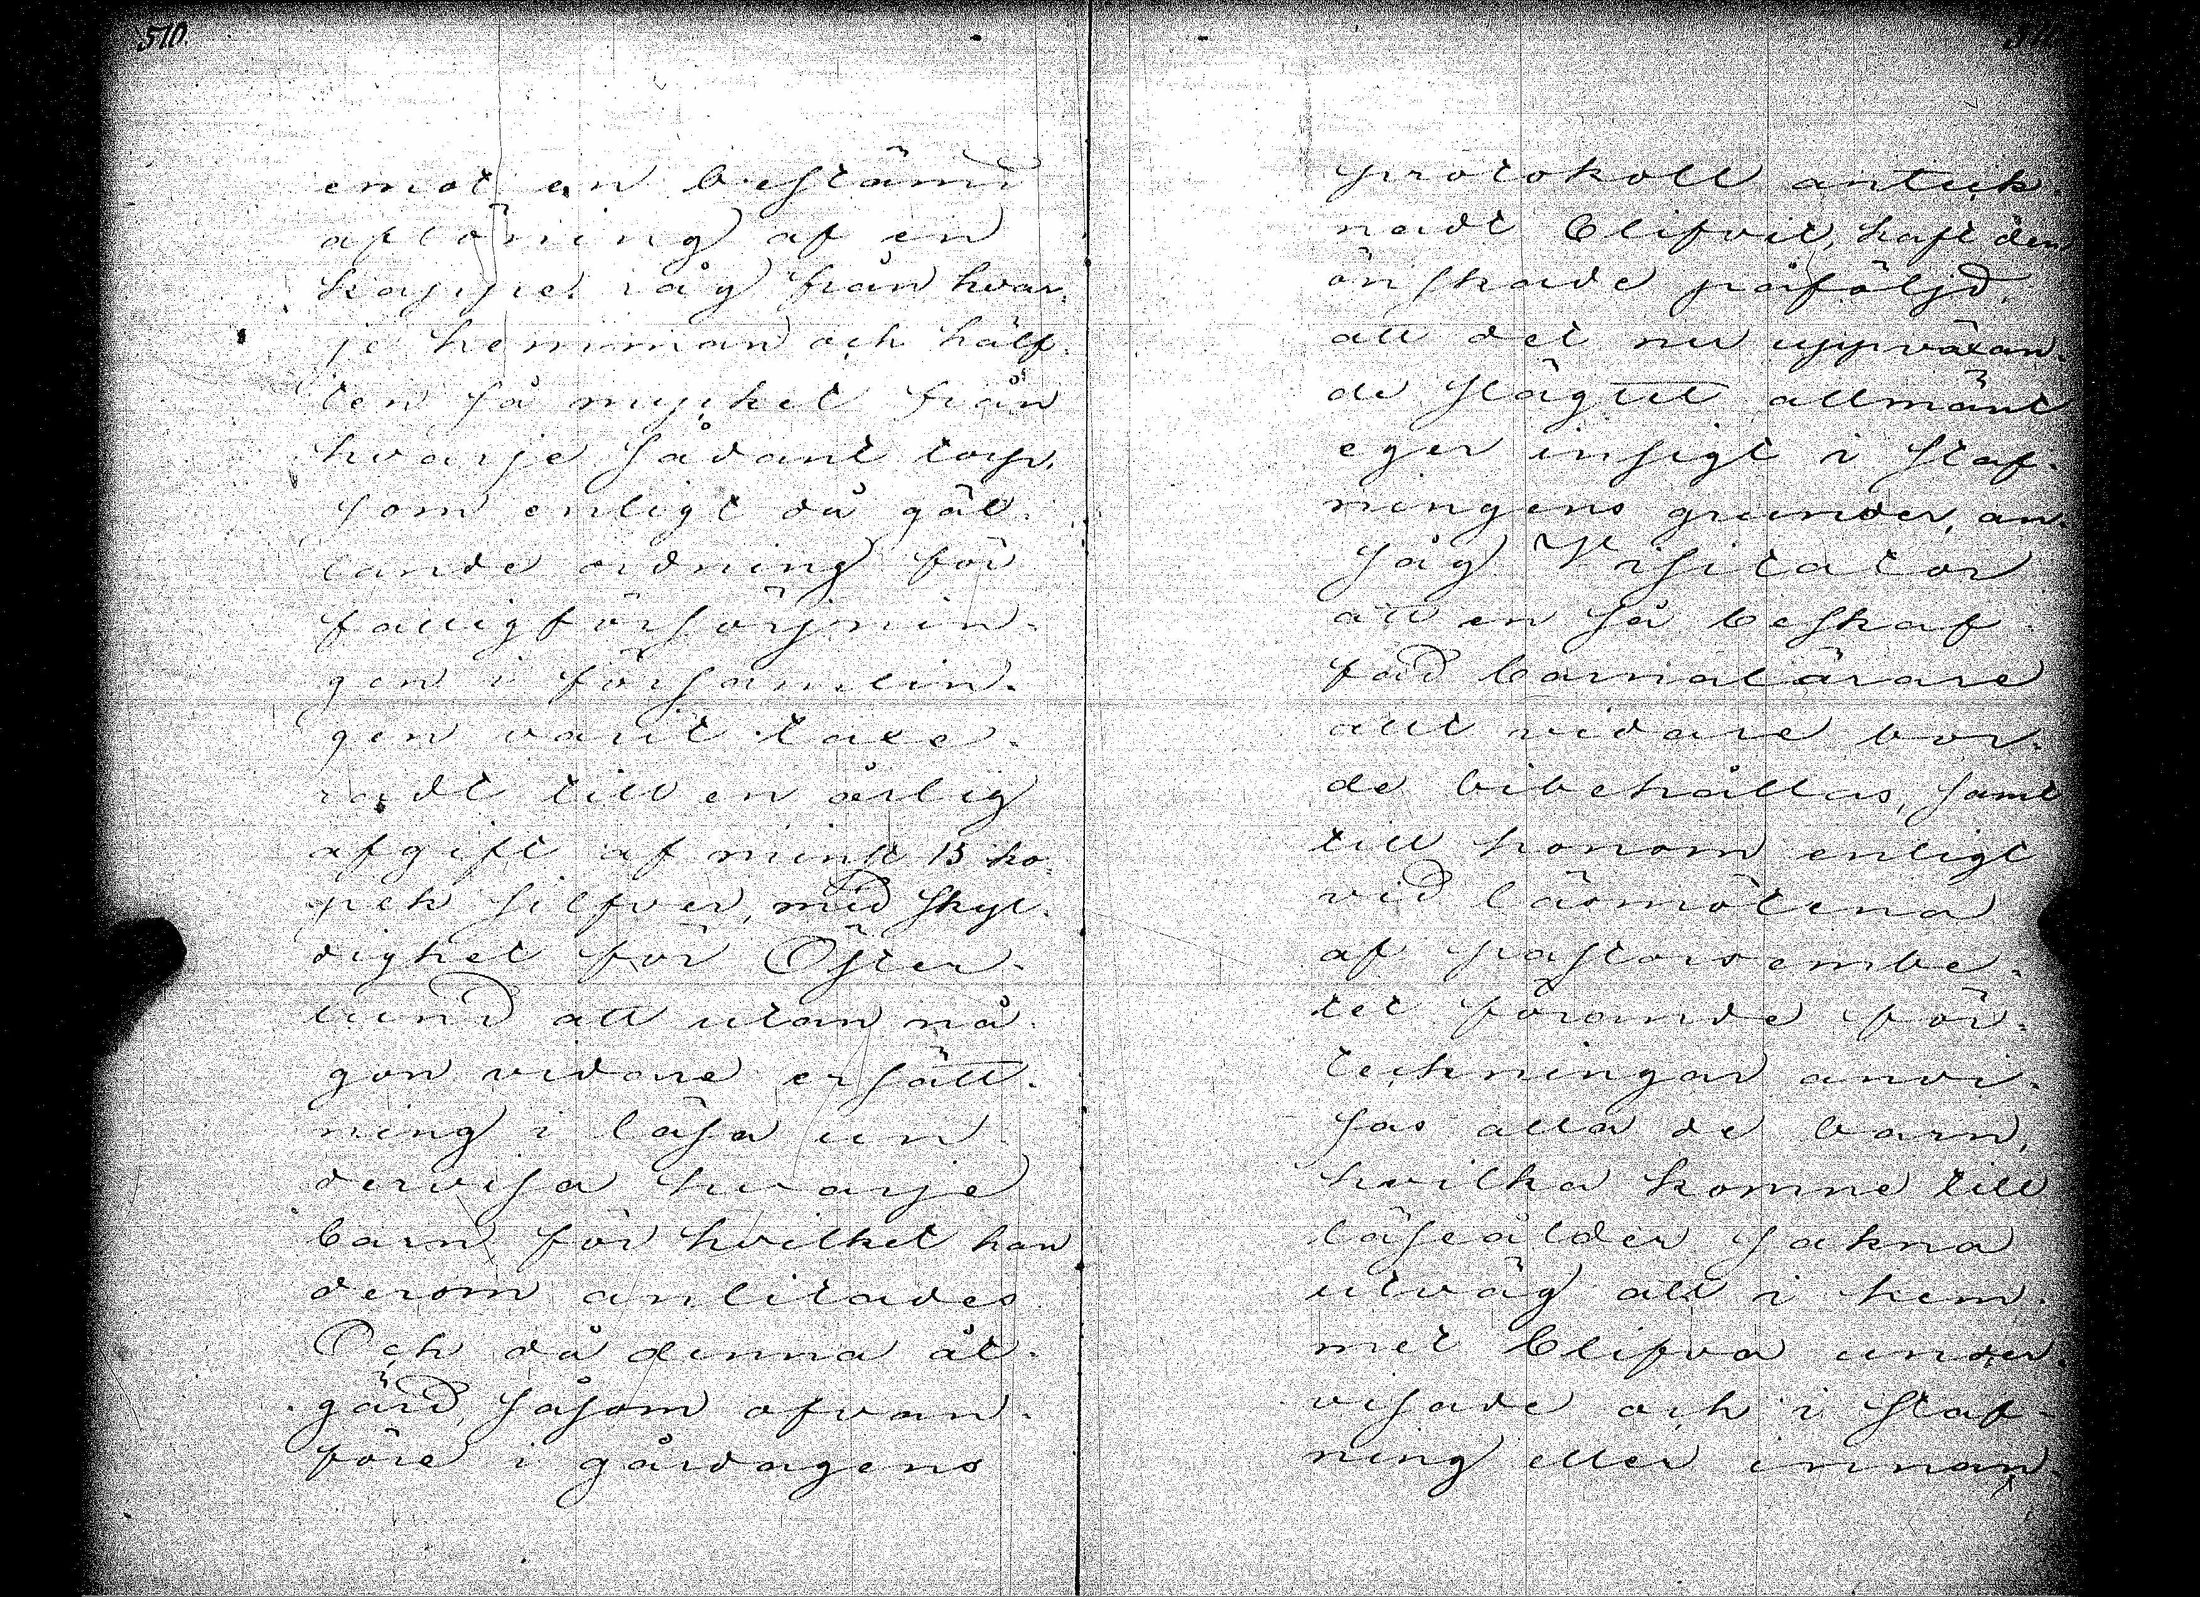 510.
emot en bestämd
aflöning af en
kappe råg från hvar-
je hemman och hälf-
ten så mycket från
hvarje sådant torp,
som enligt då gäl-
lande ordning för
fattigförsörjnin-
gen i församlin-
gen varit taxe-
radt till en årlig
afgift af minst 15 ko-
pek silfver, med skyl-
dighet för Öster-
lund att utan nå-
gon vidare ersätt-
ning i läsa un-
dervisa hvarje
barn för hvilket han
derom anlitades.
Och då denna åt-
gärd, såsom ofvan-
före i gårdagens
511.
protokoll anteck-
nadt blifvit, haft den
önskade påföljd,
att det nu uppväxan-
de slägtet allmänt
eger insigt i staf-
ningens grunder, an-
såg Visitator
att en så beskaf-
fad barnalärare
allt vidare bor-
de bibehållas, samt
till honom enligt
vid läsmötena
af pastorsembe-
tet förande för-
teckningar anvi-
sas alla de barn,
hvilka komne till
läseålder sakna
utväg att i hem-
met blifva under-
visade och i staf-
ning eller innan-